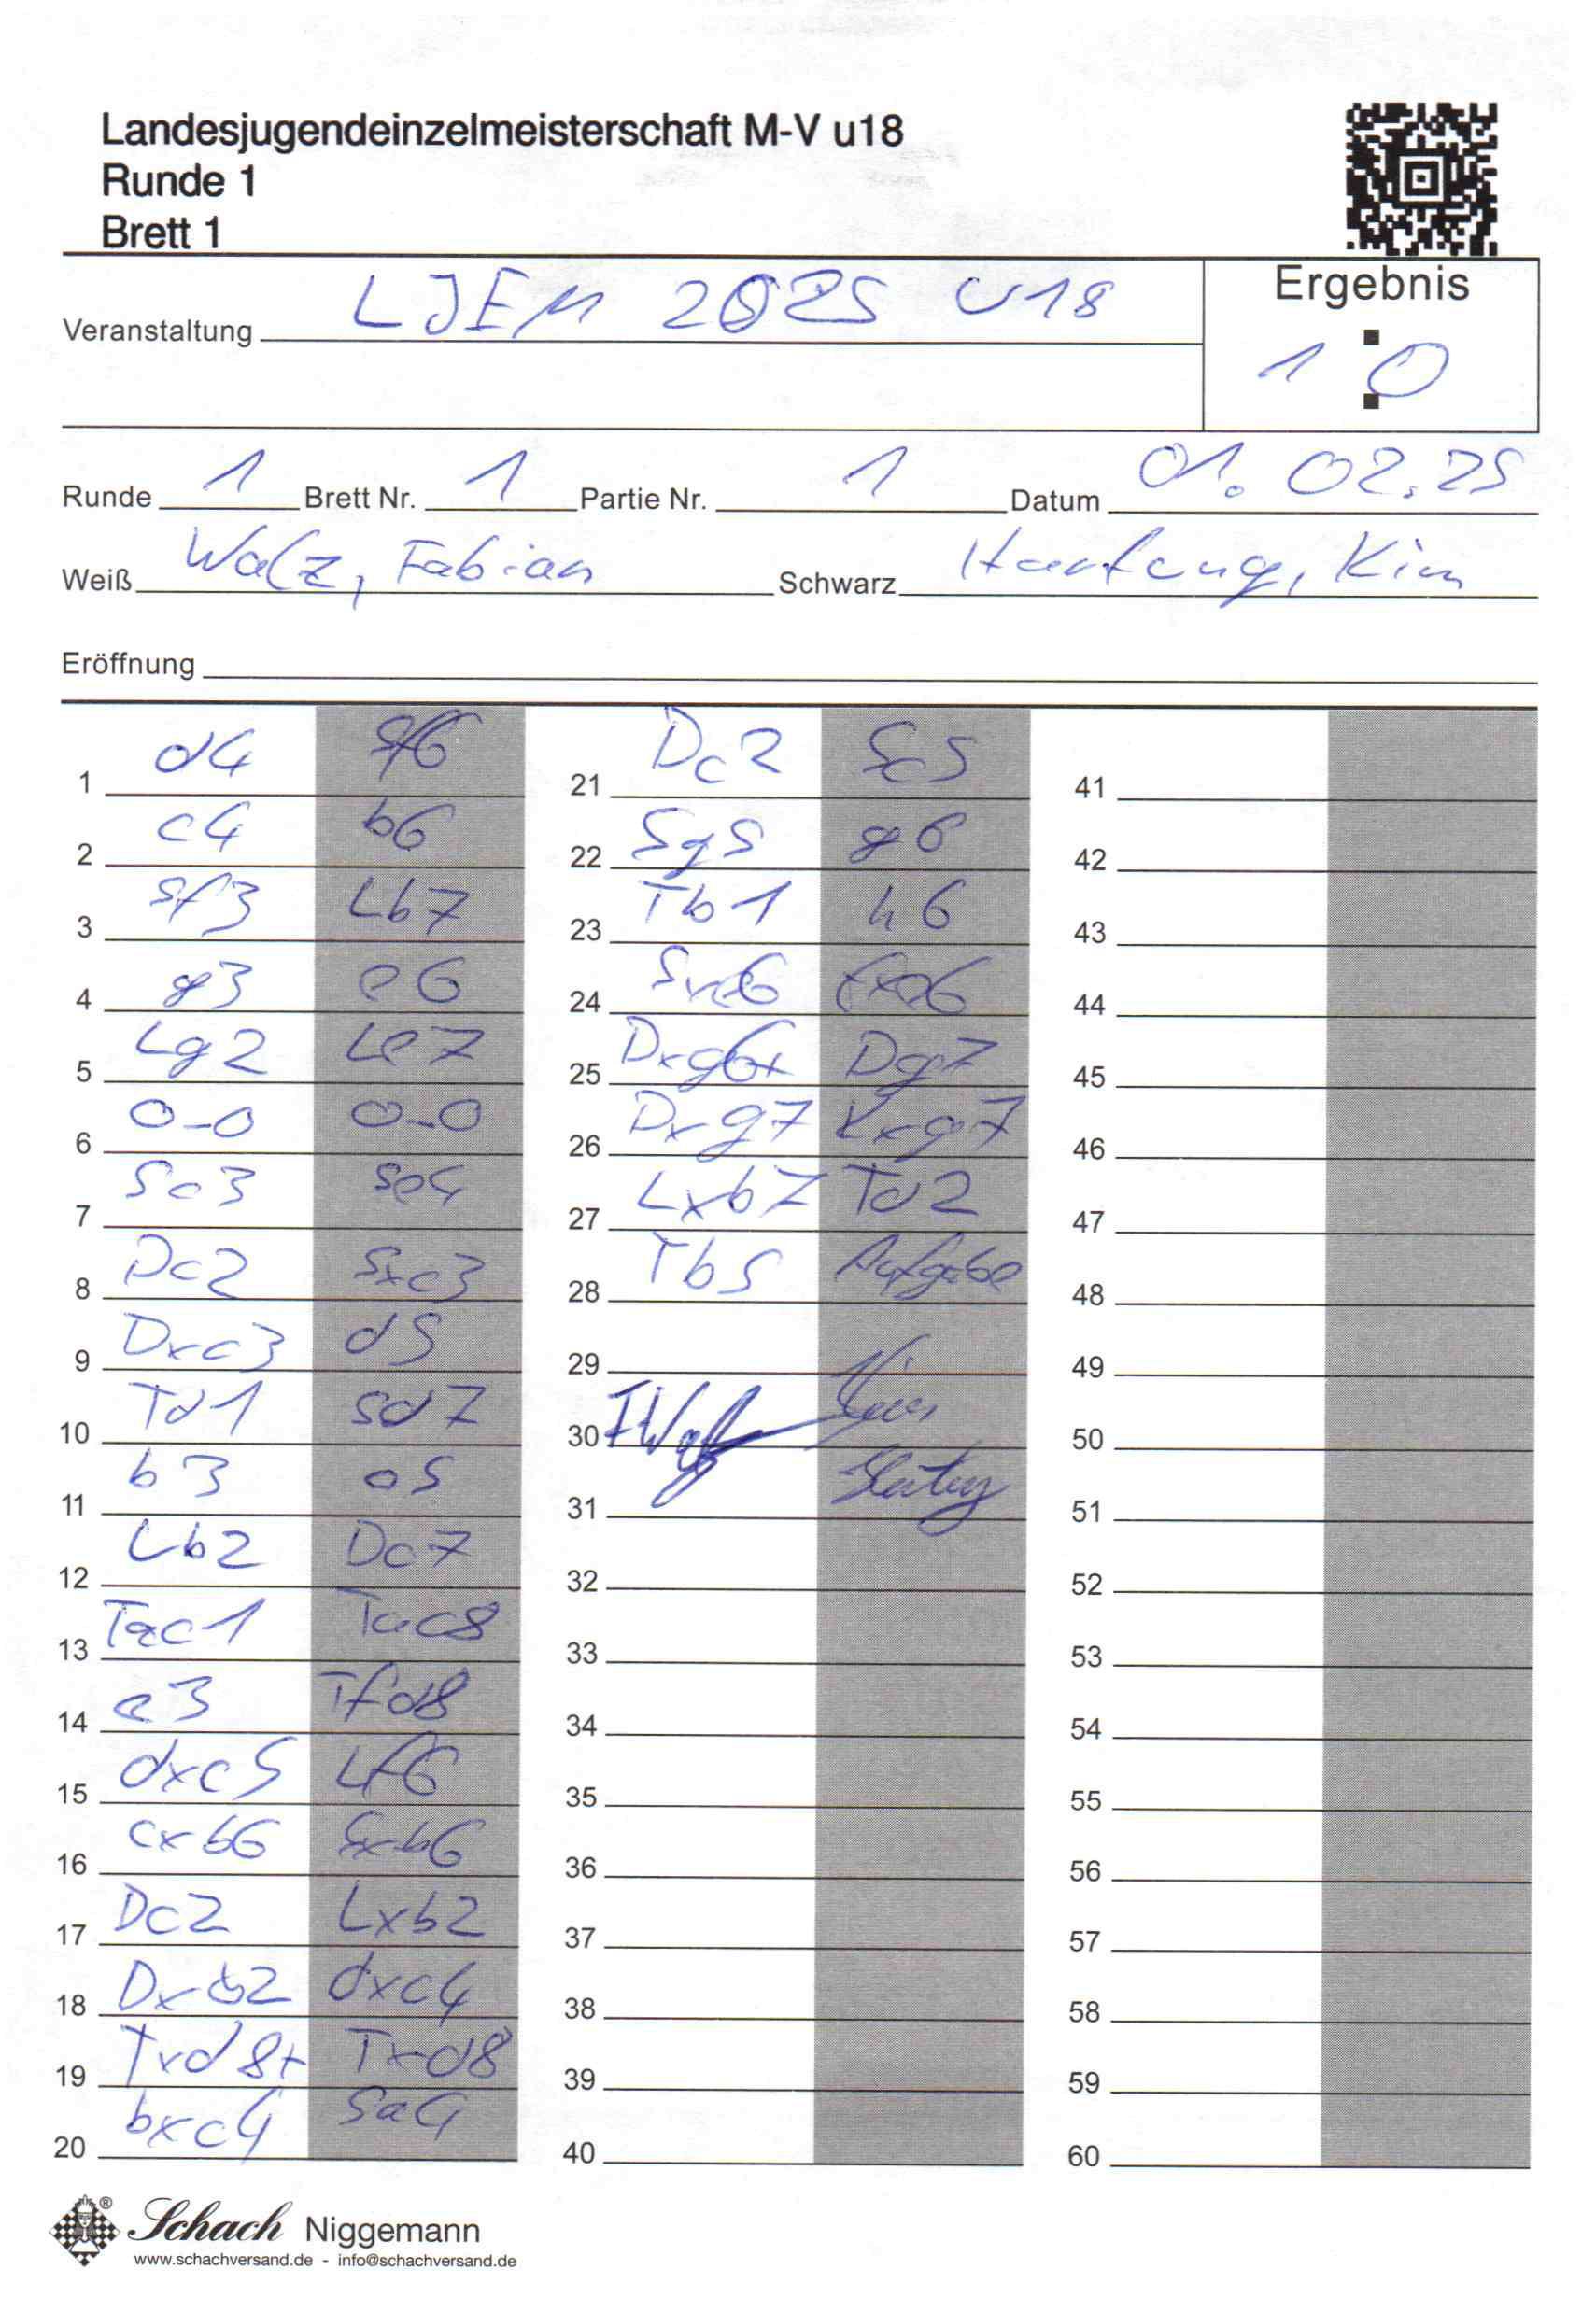 Landesjugendeinzelmeisterschaft M-V u18
Runde 1
Brett 1
Veranstaltung LJEM 2025 U18
Ergebnis
1 : 0
Runde 1 Brett Nr. 1 Partie Nr. 1 Datum 01.02.25
Weiß Walz, Fabian Schwarz Hartung, Kim
Eröffnung
1 d4 Sf6
2 c4 b6
3 Sf3 Lb7
4 g3 e6
5 Lg2 Le7
6 0-0 0-0
7 Sc3 Se4
8 Dc2 Sxc3
9 Dxc3 d5
10 Td1 Sd7
11 b3 c5
12 Lb2 Dc7
13 Tac1 Tac8
14 e3 Tfd8
15 dxc5 Lf6
16 cxb6 Sxb6
17 Dc2 Lxb2
18 Dxb2 dxc4
19 Txd8+ Txd8
20 bxc4 Sa4
21 Dc2 Sc5
22 Sg5 g6
23 Tb1 h6
24 Sxe6 fxe6
25 Dxg6+ Dg7
26 Dxg7 Kxg7
27 Lxb7 Td2
28 Tb5 Aufgabe
29
30 FWalz Kim
31 Hartung
32
33
34
35
36
37
38
39
40
41
42
43
44
45
46
47
48
49
50
51
52
53
54
55
56
57
58
59
60
Schach Niggemann
www.schachversand.de - info@schachversand.de